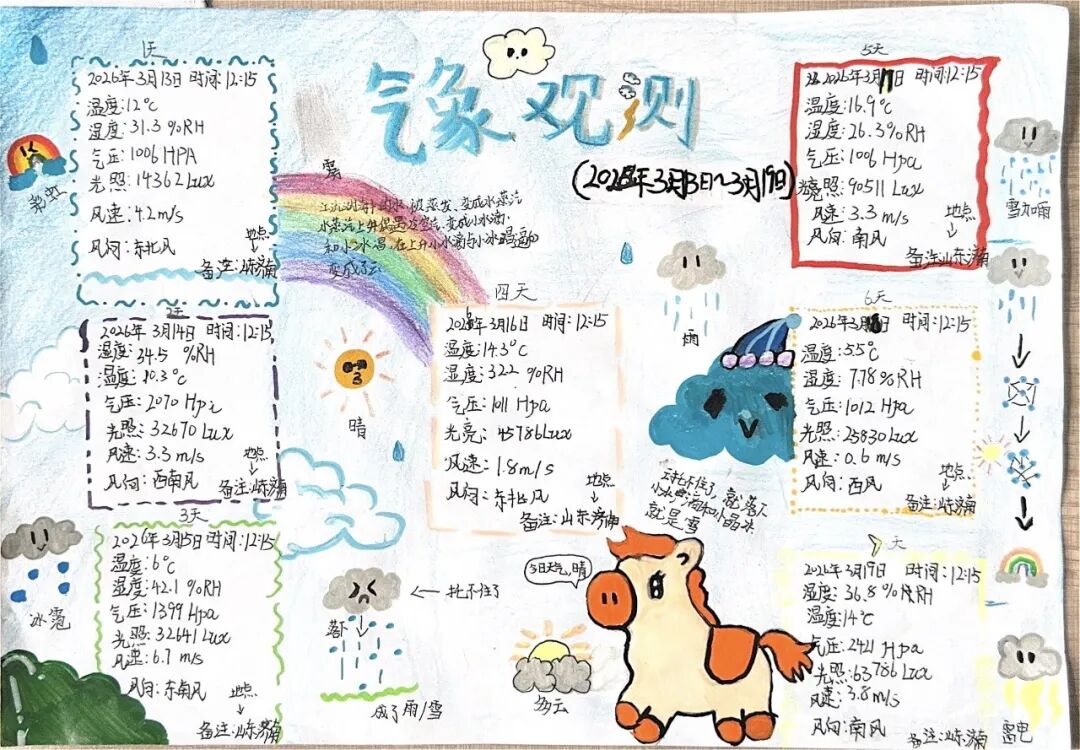 气象观测
(2026年3月13日~3月19日)
1天
2026年3月13日 时间:12:15
温度:12℃
湿度:31.3 %RH
气压:1006 HPA
光照:14362 Lux
风速:4.2m/s
风向:东北风
地点
备注:山东济南
彩虹
2天
2026年3月14日 时间:12:15
湿度:34.5 %RH
温度:10.3℃
气压:2070 Hpa
光照:32670 Lux
风速:3.3m/s
地点
风向:西南风
备注:山东济南
3天
2026年3月15日 时间:12:15
温度:6℃
湿度:42.1 %RH
气压:1399 Hpa
光照:32641 Lux
风速:6.7 m/s
风向:东南风
地点
备注:山东济南
冰雹
雾
水蒸汽上升偶遇冷空气,变成小水滴
和小冰晶,在上升小水滴与小冰晶
变成了云
晴
四天
2026年3月16日 时间:12:15
温度:14.3℃
湿度:322 %RH
气压:1011 Hpa
光亮:45786Lux
风速:1.8m/s
风向:东北风
地点
备注:山东济南
雨
托不住了
落下
成了雨/雪
今日天气,晴
多云
托不住了,就落下
就是雪
5天
2026年3月17日 时间:12:15
温度:16.9℃
湿度:26.3%RH
气压:1006 Hpa
光照:90511 Lux
风速:3.3 m/s
地点
风向:南风
备注:山东济南
雪加雨
6天
2026年3月18日 时间:12:15
温度:5.5℃
湿度:7.78%RH
气压:1012 Hpa
光照:25830 Lux
风速:0.6 m/s
地点
风向:西风
备注:山东济南
7天
2026年3月19日 时间:12:15
湿度:36.8 %RH
温度:14℃
气压:2421 Hpa
光照:63786 Lux
风速:3.8m/s
风向:南风
备注:山东济南
雷电